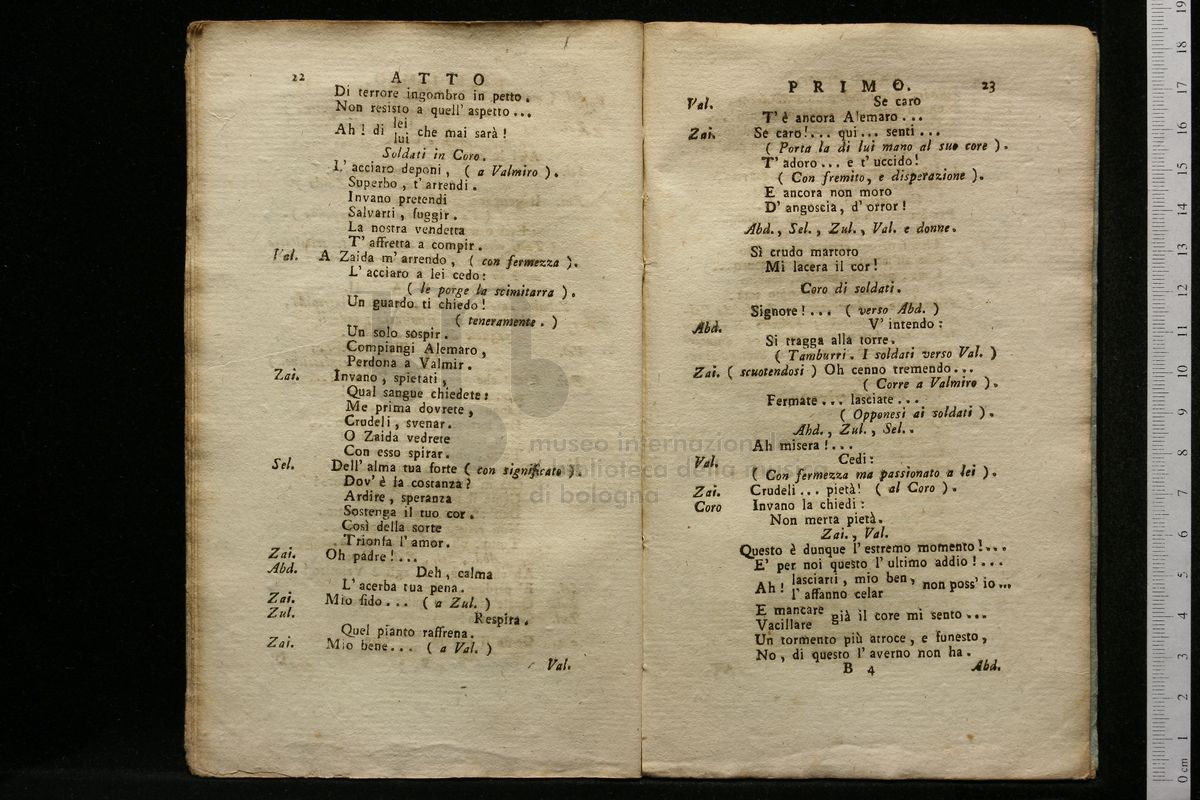 22 ATTO
Di terrore ingombro in petto.
Non resisto a quell' aspetto...
lei
Ah! di che mai sarà!
lui
Soldati in Coro.
L' acciaro deponi, ( a Valmiro ).
Superbo, t' arrendi.
Invano pretendi
Salvarti, fuggir.
La nostra vendetta
T' affretta a compir.
Val. A Zaida m' arrendo, ( con fermezza ).
L' acciaro a lei cedo:
( le porge la scimitarra ).
Un guardo ti chiedo!
( teneramente. )
Un solo sospir.
Compiangi Alemaro,
Perdona a Valmir.
Zai. Invano, spietati,
Qual sangue chiedete:
Me prima dovrete,
Crudeli, svenar.
O Zaida vedrete
Con esso spirar.
Sel. Dell' alma tua forte ( con significato ).
Dov' è la costanza?
Ardire, speranza
Sostenga il tuo cor.
Così della sorte
Trionfa l' amor.
Zai. Oh padre!...
Abd. Deh, calma
L' acerba tua pena.
Zai. Mio fido... ( a Zul. )
Zul. Respira.
Quel pianto raffrena.
Zai. Mio bene... ( a Val. )
Val.
PRIMO. 23
Val. Se caro
T' è ancora Alemaro...
Zai. Se caro!... qui... senti...
( Porta la di lui mano al suo core ).
T' adoro... e t' uccido!
( Con fremito, e disperazione ).
E ancora non moro
D' angoscia, d' orror!
Abd., Sel., Zul., Val. e donne.
Sì crudo martoro
Mi lacera il cor!
Coro di soldati.
Signore!... ( verso Abd. )
Abd. V' intendo:
Si tragga alla torre.
( Tamburri. I soldati verso Val. )
Zai. ( scuotendosi ) Oh cenno tremendo...
( Corre a Valmiro ).
Fermate... lasciate...
( Opponesi ai soldati ).
Abd., Zul., Sel.
Ah misera!...
Val. Cedi:
( Con fermezza ma passionato a lei ).
Zai. Crudeli... pietà! ( al Coro ).
Coro Invano la chiedi:
Non merta pietà.
Zai., Val.
Questo è dunque l' estremo momento!...
E' per noi questo l' ultimo addio!...
lasciarti, mio ben,
Ah! non poss' io...
l' affanno celar
E mancare
già il core mi sento...
Vacillare
Un tormento più atroce, e funesto,
No, di questo l' averno non ha.
B 4 Abd.
museo internazionale
e biblioteca della musica
di bologna
0 cm 1 2 3 4 5 6 7 8 9 10 11 12 13 14 15 16 17 18 19